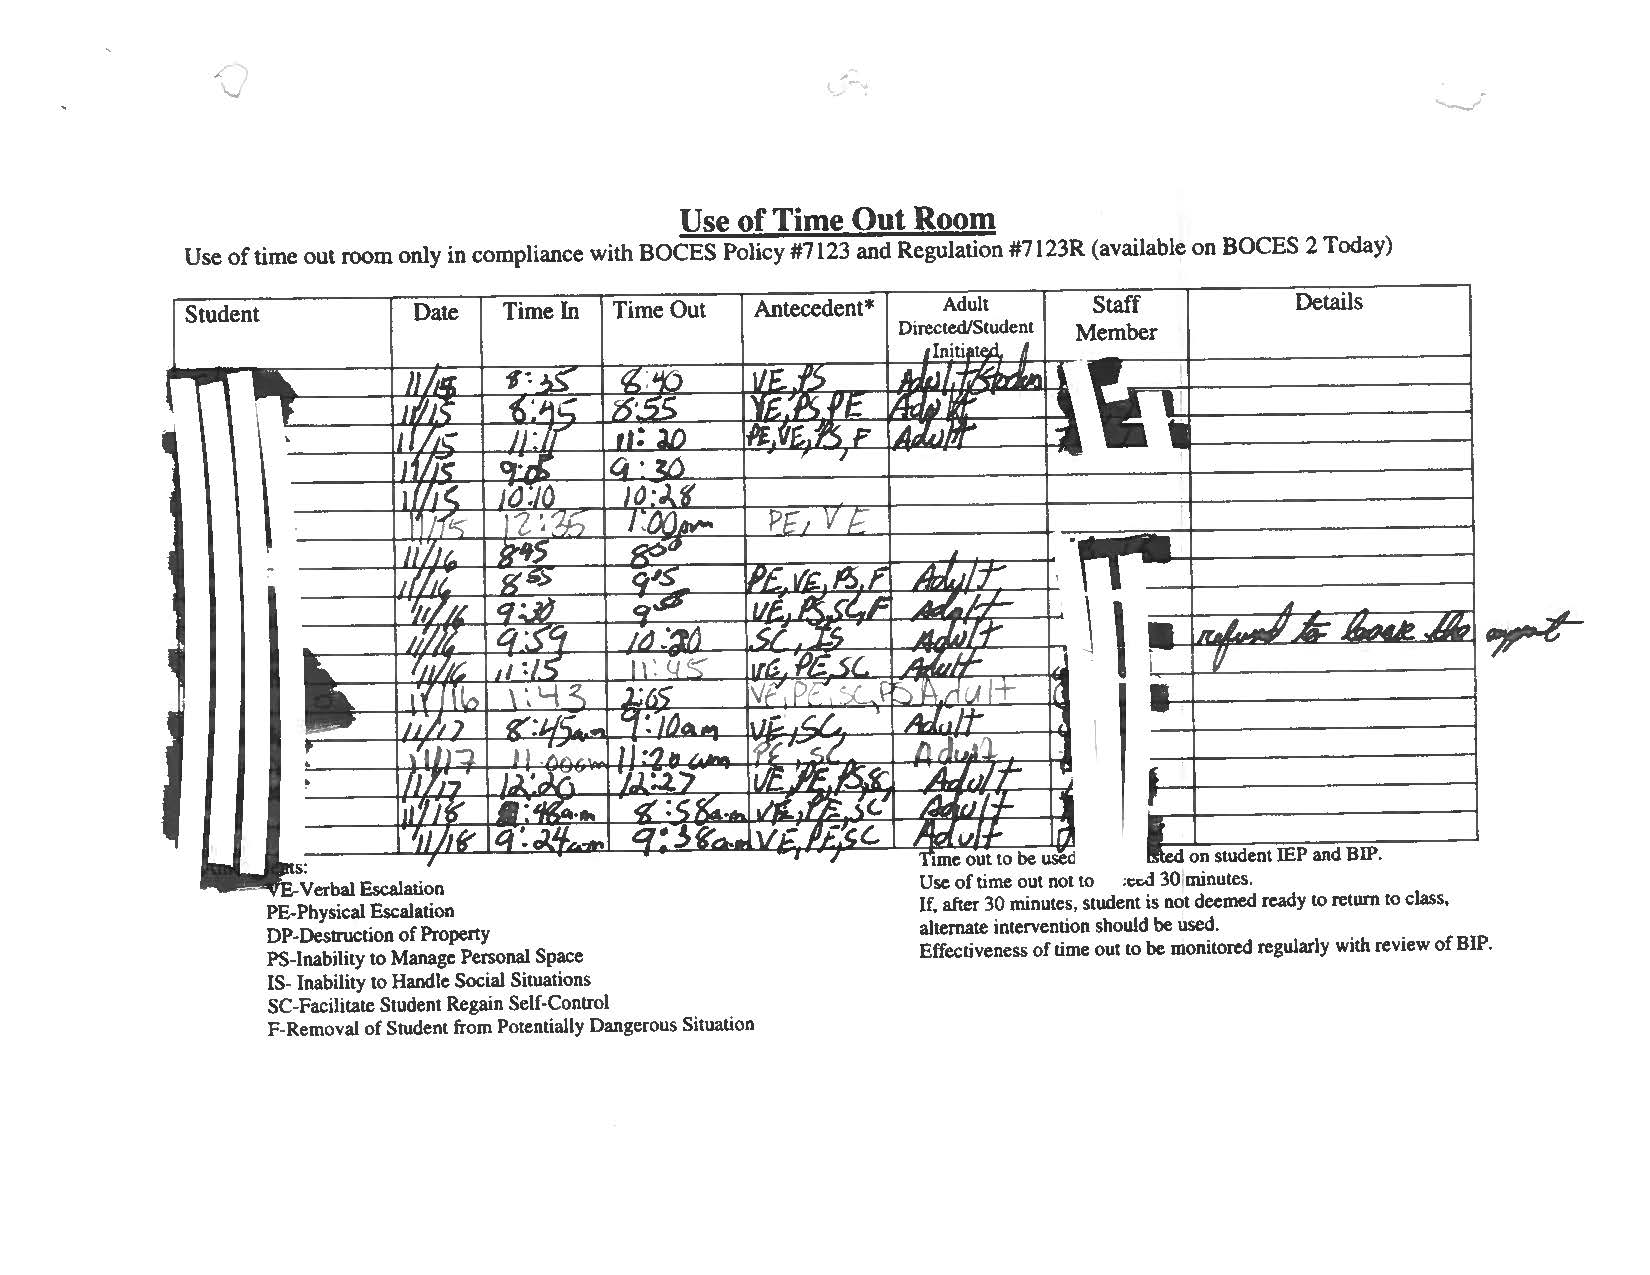 Use of Time Out Room
Use of time out room only in compliance with BOCES Policy #7123 and Regulation #7123R (available on BOCES 2 Today)
Student Date Time In Time Out Antecedent* Adult Directed/Student Initiated Staff Member Details
11/15 8:35 8:40 VE, PS Adult/Studen
11/15 8:45 8:55 VE, PS, PE Adult
11/15 11:11 11:20 PE, VE, PS, F Adult
11/15 9:05 9:30
11/15 10:10 10:28
11/15 12:35 1:00pm PE, VE
11/16 8:45 8:00
11/16 8:55 9:15 PE, VE, PS, F Adult
11/16 9:30 9:58 VE, PS, SC, F Adult
11/16 9:59 10:20 SC, IS Adult to leave the
11/16 11:15 11:45 VE, PE, SC Adult
11/16 1:43 2:05 VE, PE, SC, PS Adult
11/17 8:45am 9:10am VE, SC, Adult
11/17 11:00am 11:20am PE, SC Adult
11/17 12:20 12:27 VE, PE, PS, Adult
11/18 :48a.m 8:58a.m VE, PE, SC Adult
11/18 9:24am 9:38am VE, PE, SC Adult
VE-Verbal Escalation
PE-Physical Escalation
DP-Destruction of Property
PS-Inability to Manage Personal Space
IS- Inability to Handle Social Situations
SC-Facilitate Student Regain Self-Control
F-Removal of Student from Potentially Dangerous Situation
Time out to be used on student IEP and BIP.
Use of time out not to 30 minutes.
If, after 30 minutes, student is not deemed ready to return to class,
alternate intervention should be used.
Effectiveness of time out to be monitored regularly with review of BIP.